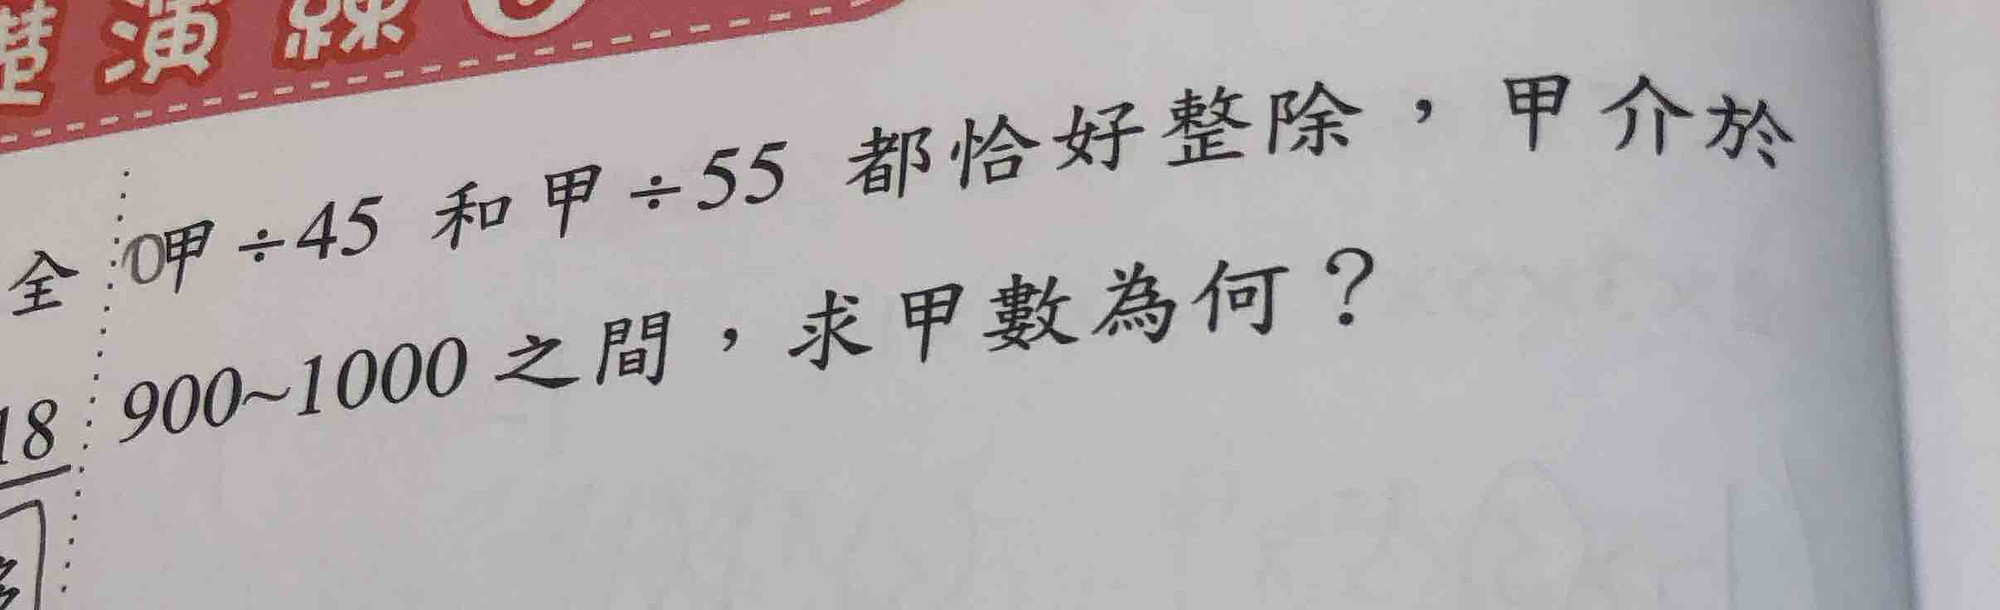 礎演練
甲÷45 和甲÷55 都恰好整除，甲介於
全
900~1000 之間，求甲數為何？
18